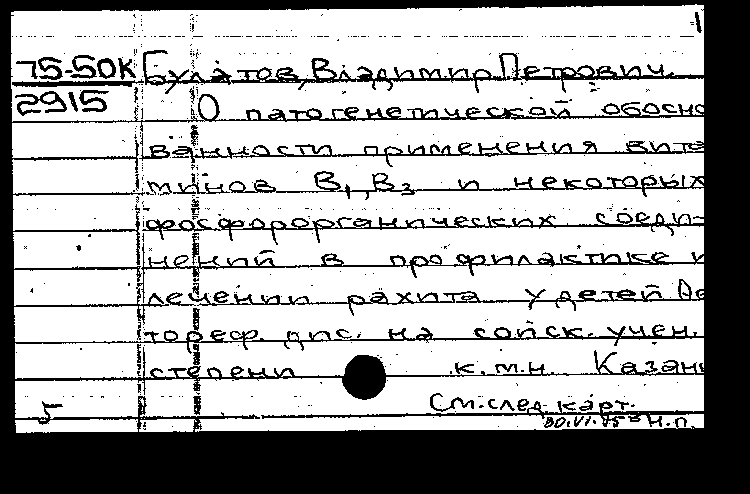 1
75-50К Булатов, Владимир Петрович.
2915 О патогенетической обосно
ванности применения вита
минов В1, В3 и некоторых
фосфорорганических соеди-
нений в профилактике и
лечении рахита у детей Ав
тореф. дис. на соиск. учен.
степени к.м.н. Казань
5 См. след. карт.
Н.П.